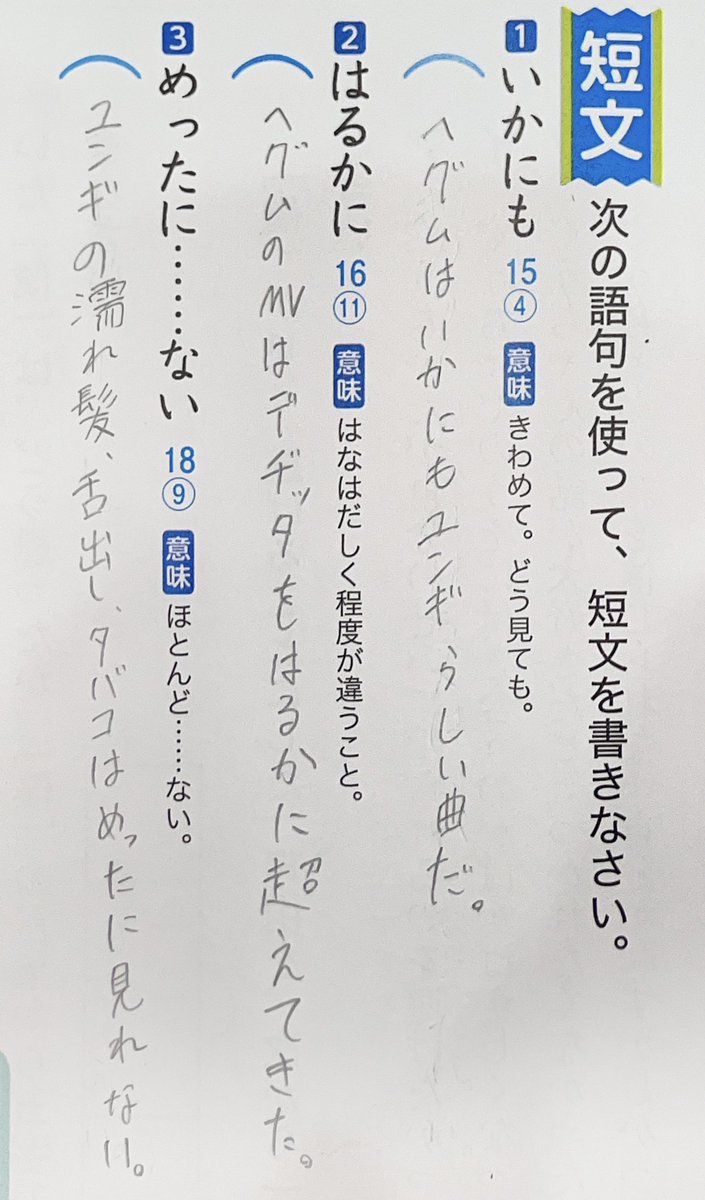 短文 次の語句を使って、短文を書きなさい。
1 いかにも 15④ 意味 きわめて。どう見ても。
ヘグムはいかにもユンギらしい曲だ。
2 はるかに 16⑪ 意味 はなはだしく程度が違うこと。
ヘグムのMVはデチッタをはるかに超えてきた。
3 めったに……ない 18⑨ 意味 ほとんど……ない。
ユンギの濡れ髪、舌出し、タバコはめったに見れない。